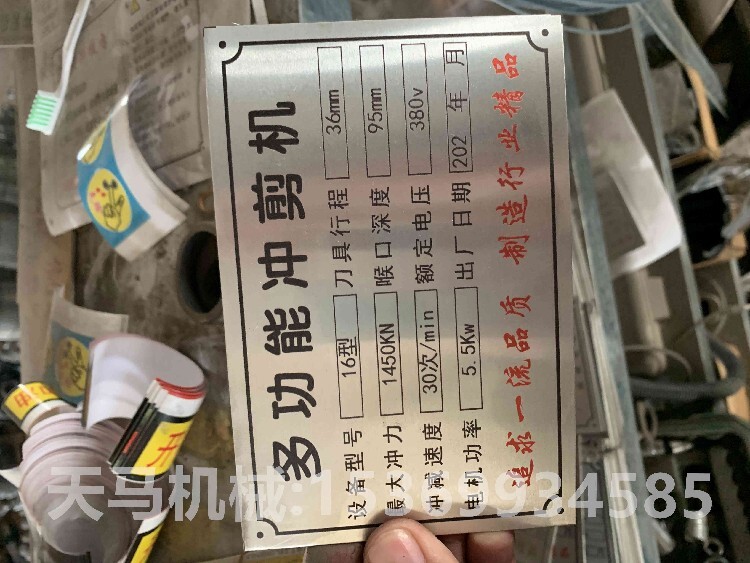 多功能冲剪机
设备型号 16型 刀具行程 36mm
最大冲力 1450KN 喉口深度 95mm
冲减速度 30次/min 额定电压 380v
电机功率 5.5Kw 出厂日期 202 年 月
追求一流品质 制造行业精品
天马机械:15369934585